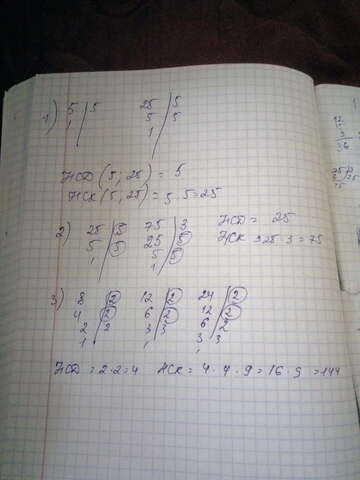 1) 5 | 5 25 | 5
1 5 | 5
1
НСД (5, 25) = 5
НСК (5, 25) = 5 · 5 = 25
2) 25 | 5 75 | 3 НСД = 25
5 | 5 25 | 5 НСК = 25 · 3 = 75
1 5 | 5
1
3) 8 | 2 12 | 2 24 | 2
4 | 2 6 | 2 12 | 2
2 | 2 3 | 3 6 | 2
1 1 3 | 3
1
НСД = 2 · 2 = 4 НСК = 4 · 4 · 9 = 16 · 9 = 144